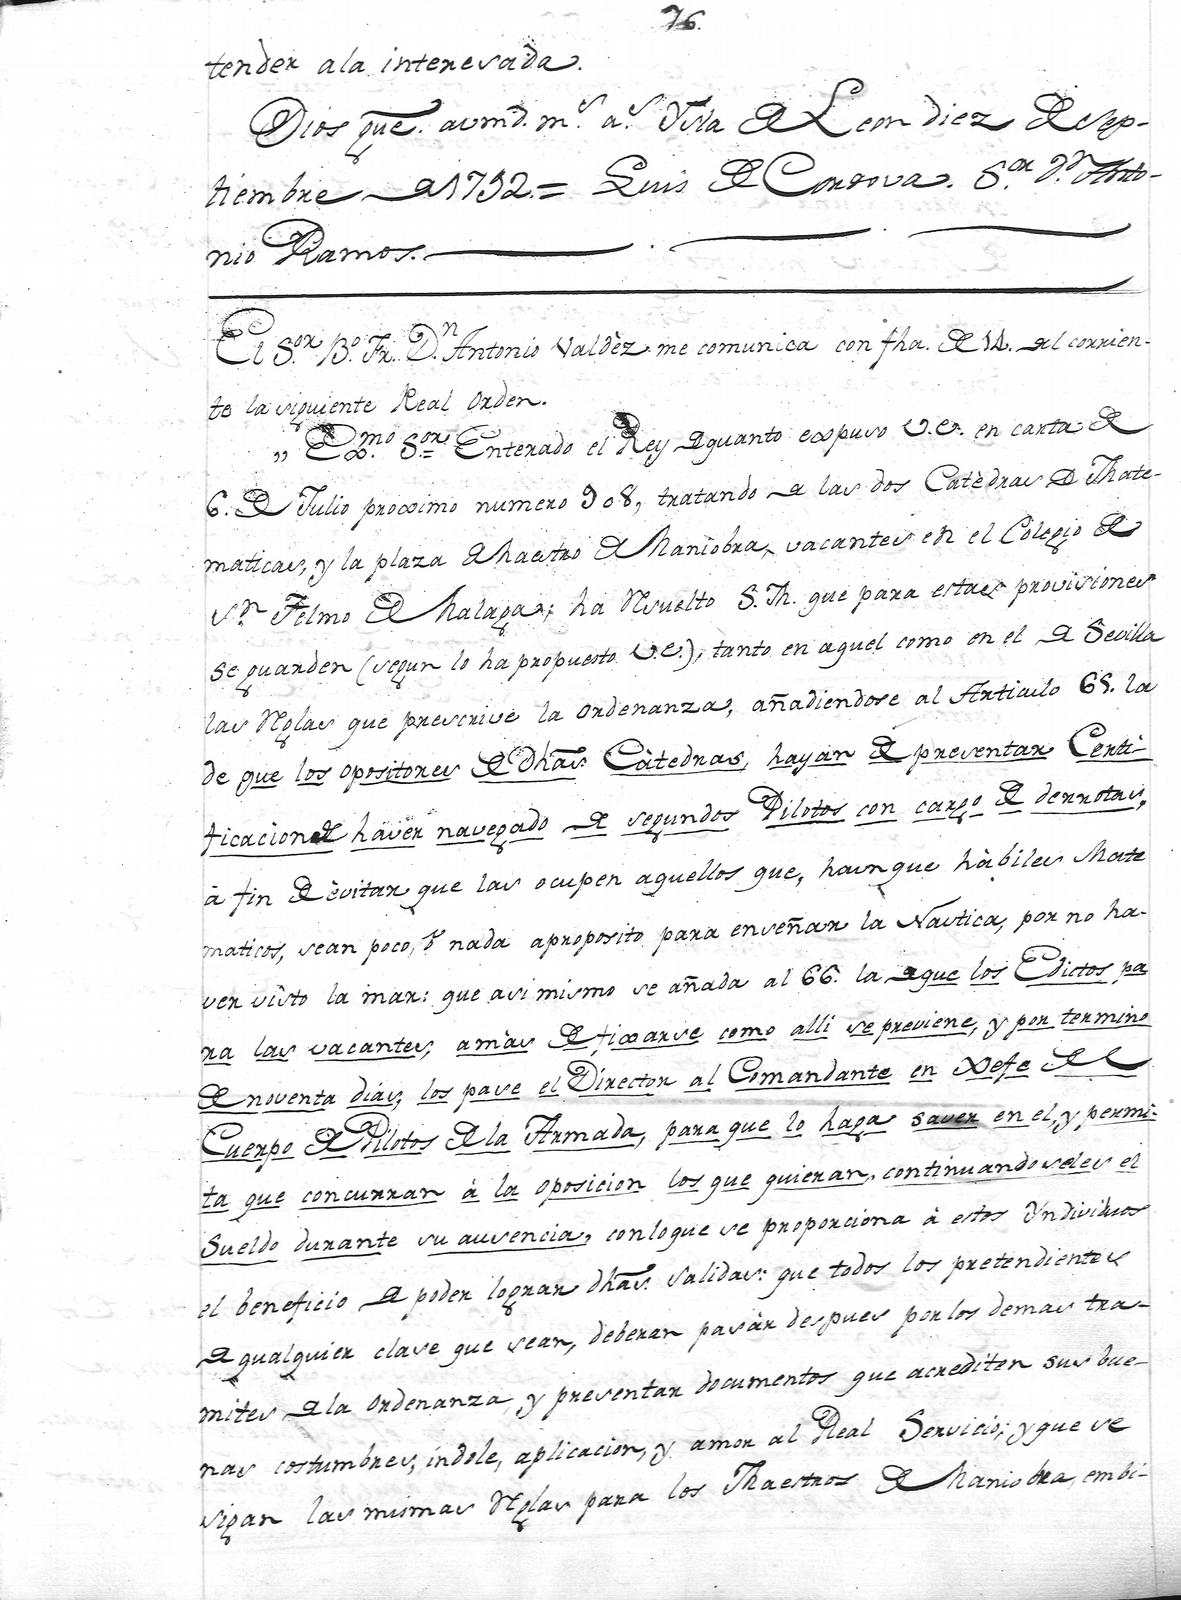 76.
tender ala interesada.
Dios gue. avmd. ms. as. Ysla de Leon diez de sep-
tiembre de 1792.= Luis de Cordova. S.or D.n Anto-
nio Ramos.
El S.or B.o Fr. D.n Antonio Valdèz me comunica con fha. de 14. del corrien-
te la siguiente Real Orden.
„ Ex.mo S.or= Enterado el Rey de quanto expuso V.e. en carta de
6. de Julio proximo numero 908, tratando de las dos Catèdras de Mate-
maticas, y la plaza de Maestro de Maniobra, vacantes en el Colegio de
Sn. Telmo de Malaga; ha Rsuelto S.M. que para estas provisiones
se guarden (segun lo ha propuesto V.e.), tanto en aquel como en el de Sevilla
las Rglas que prescrive la ordenanza, añadiendose al Articulo 65. la
de que los opositores de dhas Càtedras, hayan de presentar Certi-
ficacion de haver navegado de segundos Pilotos con cargo de derrotas,
à fin de èvitar que las ocupen aquellos que, haunque hàbiles Mate
maticos, sean poco, ò nada aproposito para enseñar la Naùtica, por no ha-
ver visto la mar: que asi mismo se añada al 66. la de que los Edictos pa
ra las vacantes, amàs de fixarse como alli se previene, y por termino
de noventa dias, los pase el Director al Comandante en Xefe del
Cuerpo de Pilotos de la Armada, para que lo haga saver en el, y permi-
ta que concurran à la oposicion los que quieran, continuandoseles el
Sueldo durante su ausencia, conloque se proporciona à estos Yndividuos
el beneficio de poder lograr dhas. Salidas: que todos los pretendientes
de qualquier clase que sean, deberan pasàr despues por los demas tra-
mites de la ordenanza, y presentar documentos que acrediten sus bue-
nas costumbres, indole, aplicacion, y amor al Real Servicio; y que se
sigan las mismas Rglas para los Maestros de Maniobra, embi-